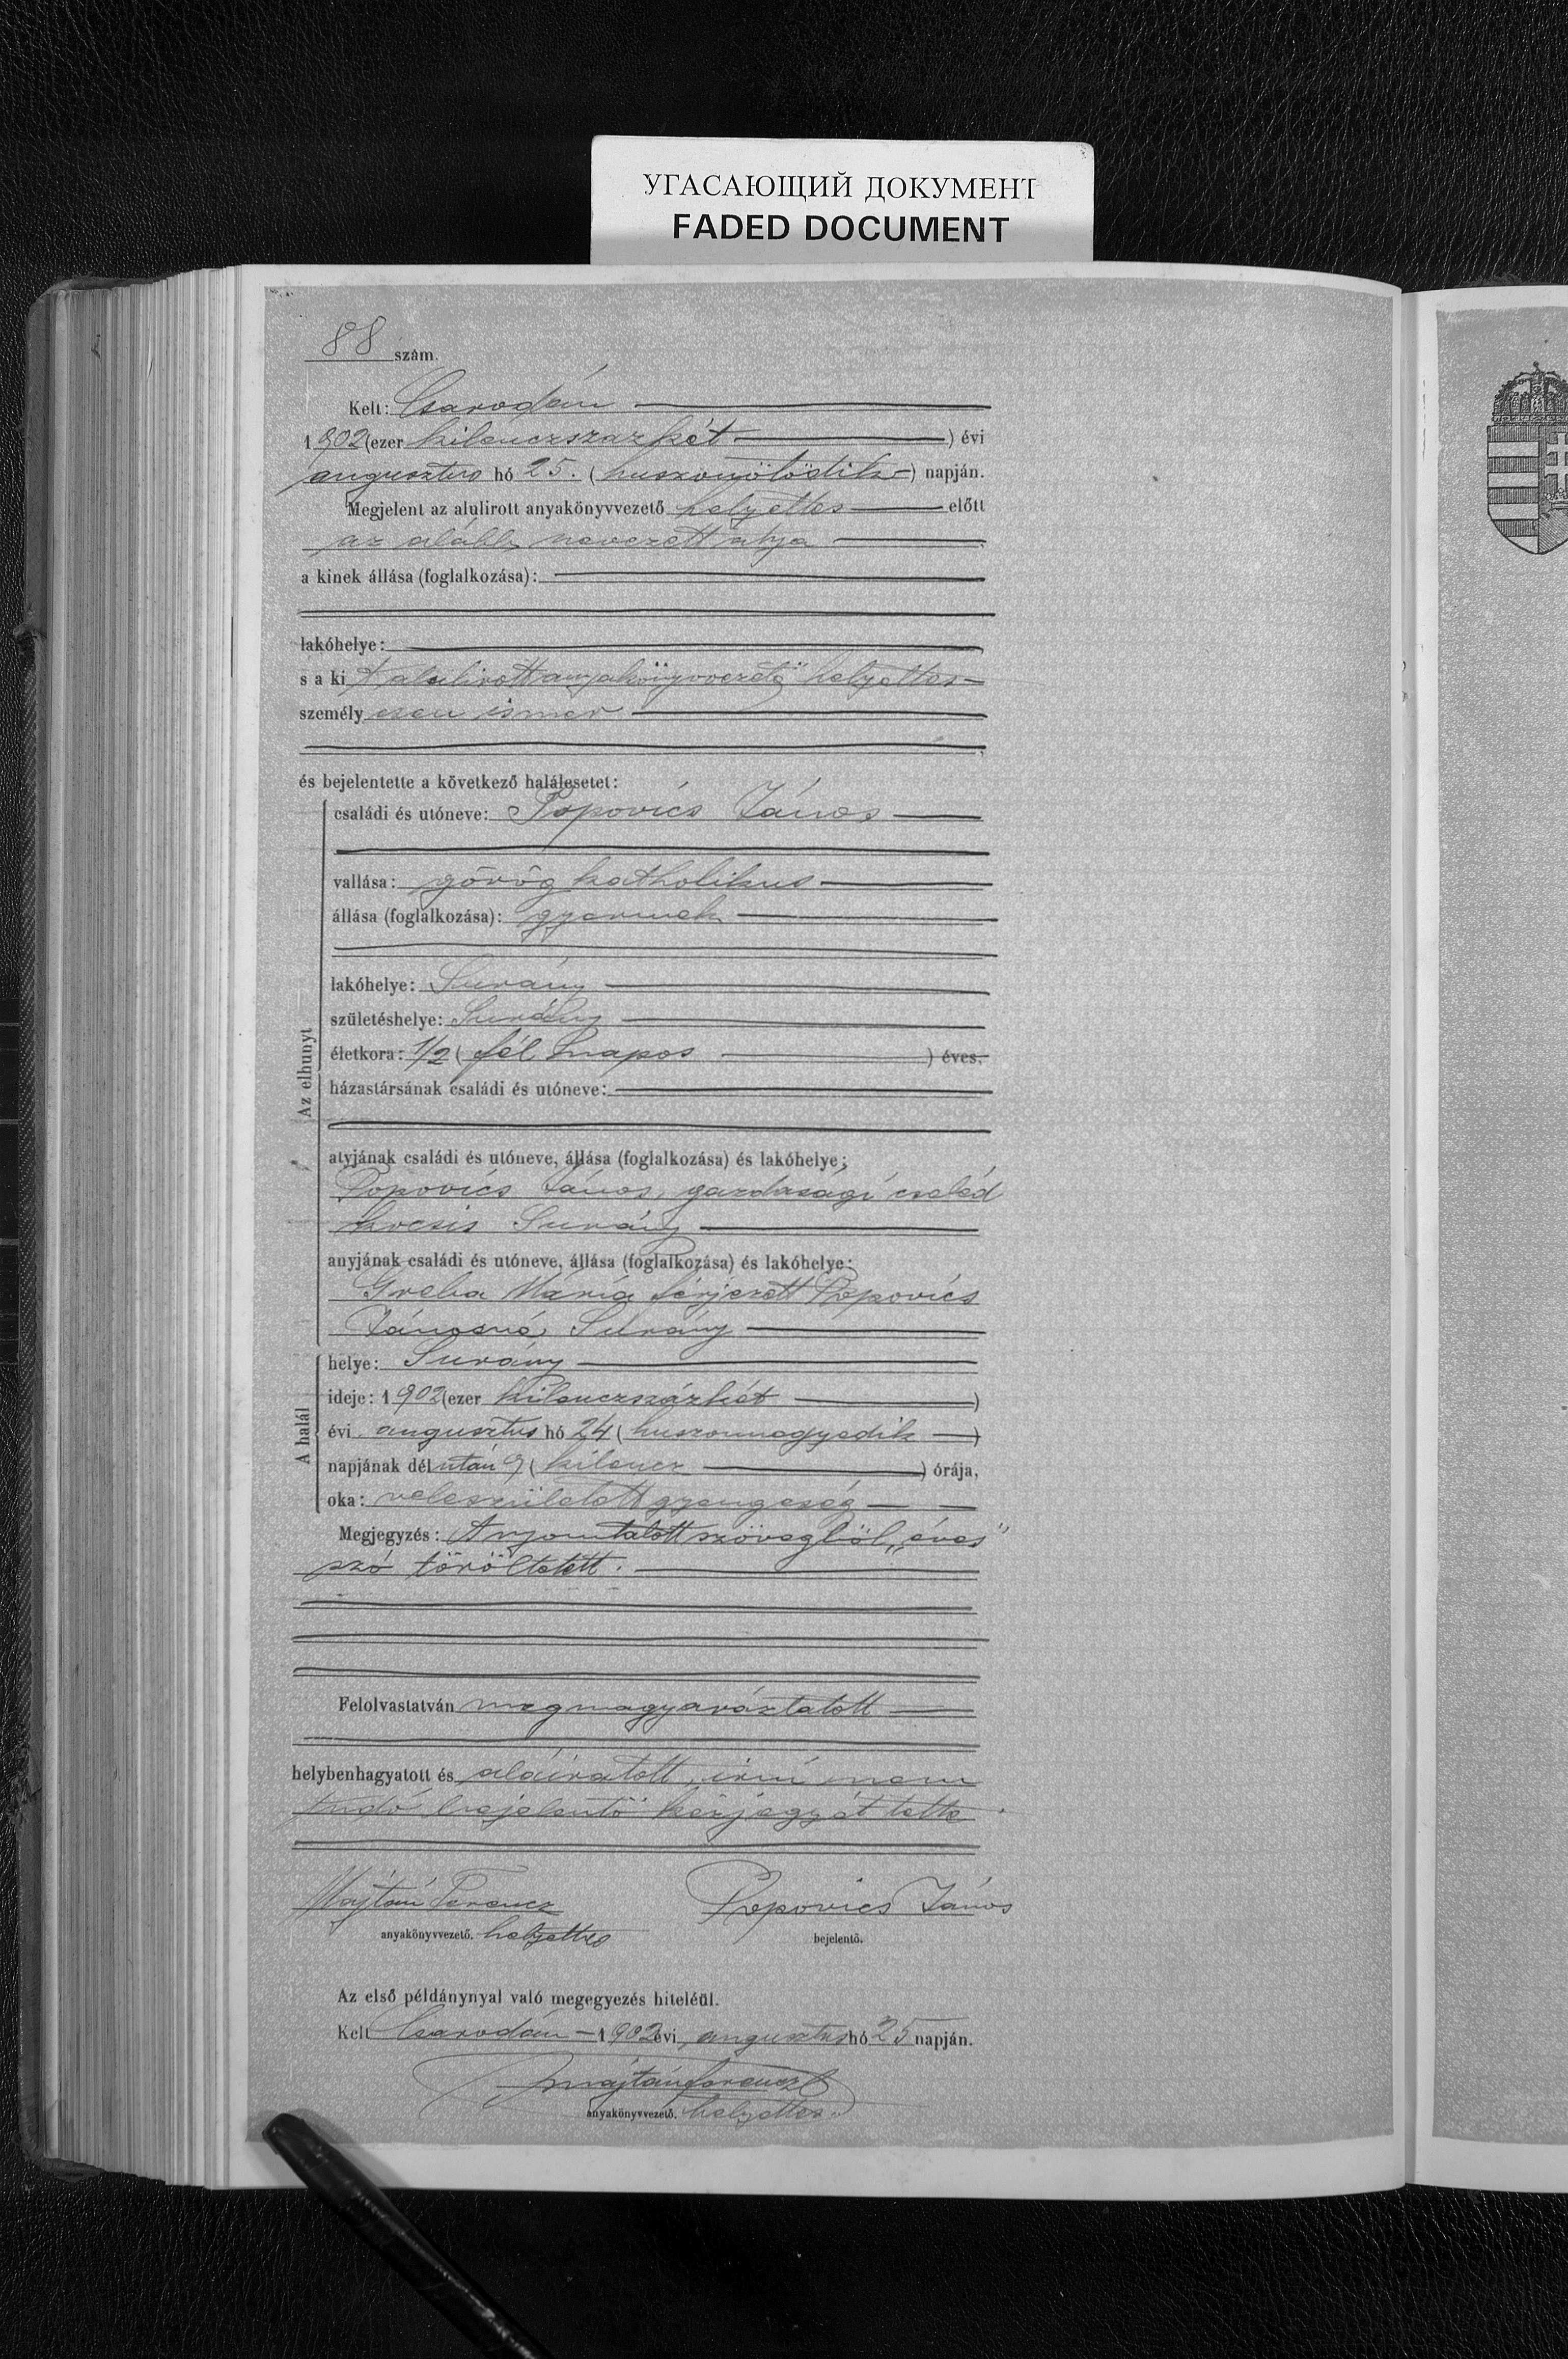 УГАСАЮЩИЙ ДОКУМЕНТ
FADED DOCUMENT
88 szám.
Kelt: Csarodán
1902 (ezer kilenczszázkét) évi
augusztus hó 25. (huszonötödik) napján.
Megjelent az alulirott anyakönyvvezető helyettes előtt
az alább nevezett atyja
a kinek állása (foglalkozása):
lakóhelye:
s a kit alulirott anyakönyvvezető helyettes
személyesen ismer
és bejelentette a következő halálesetet:
Az elhunyt
családi és utóneve: Popovics János
vallása: görög katholikus
állása (foglalkozása): gyermek
lakóhelye: Surány
születéshelye: Surány
életkora: 1/2 (fél napos) éves.
házastársának családi és utóneve:
atyjának családi és utóneve, állása (foglalkozása) és lakóhelye:
Popovics János, gazdasági cseléd
kocsis Surány
anyjának családi és utóneve, állása (foglalkozása) és lakóhelye:
Greba Mária férjezett Popovics
Jánosné, Surány
A halál
helye: Surány
ideje: 1902 (ezer kilenczszázkét)
évi augusztus hó 24 (huszonnegyedik)
napjának délután 9 (kilencz) órája,
oka: veleszületett gyengeség
Megjegyzés: A nyomtatott szövegből „éves"
szó töröltetett.
Felolvastatván megmagyaráztatott
helybenhagyatott és aláiratott, irni nem
tudó bejelentő kézjegyét tette.
Majtán Ferencz
Popovics János
anyakönyvvezető. helyettes
bejelentő.
Az első példánynyal való megegyezés hiteléül.
Kelt Csarodán 1902 évi augusztus hó 25 napján.
Majtán Ferencz
anyakönyvvezető. helyettes.